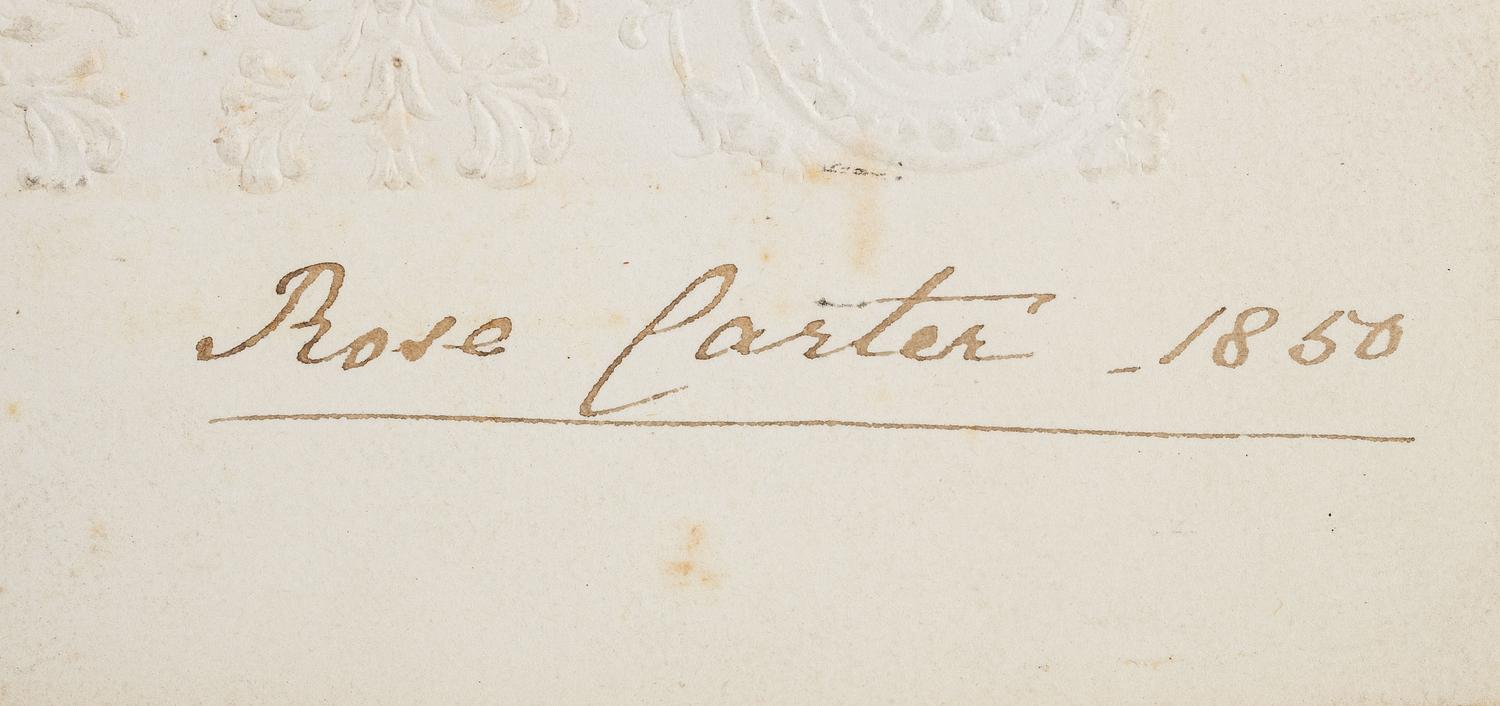 Rose Carter - 1850